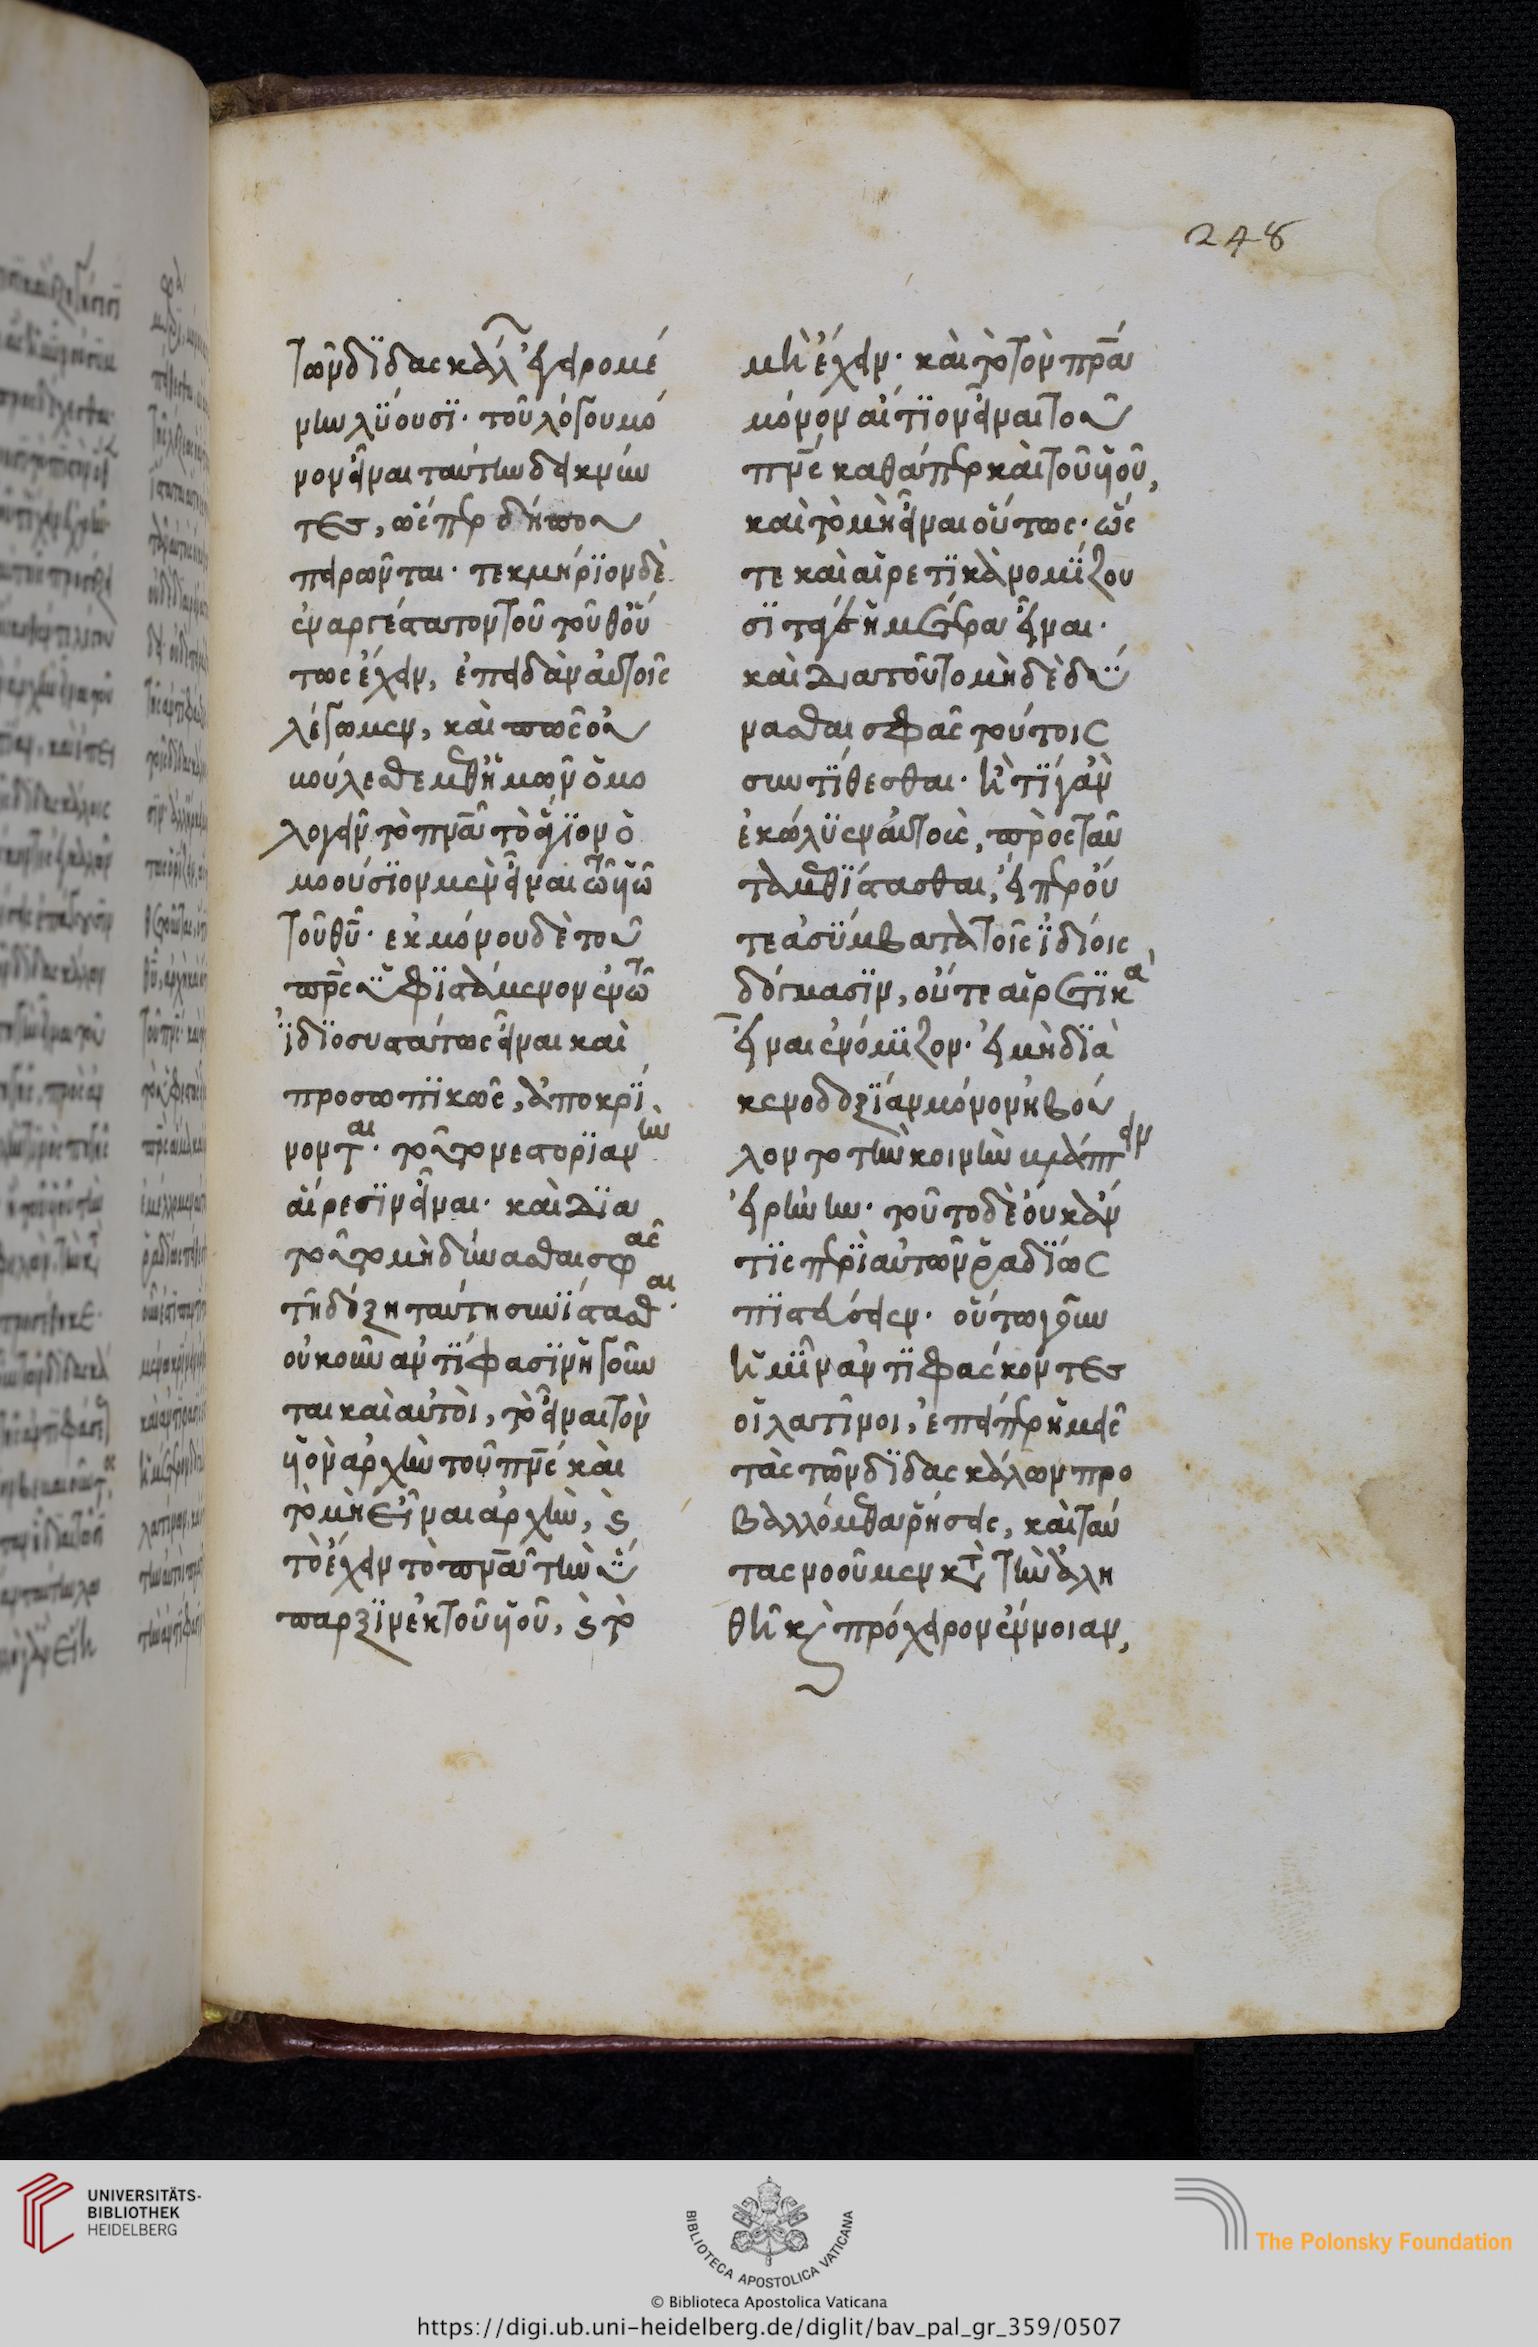 248
τῶν διδασκάλ εἰρομέ
νην λύουσι· τοῦ λόγου μό
νον εἶναι ταύτην δεικνύν
τες, ὥσπερ δήπου
πειρῶνται· τεκμήριον δὲ
ἐναργέστατον τοῦ τοῦθ οὕ
τως ἔχειν, ἐπειδὰν αὐτοῖς
λέγωμεν, καὶ πῶς οὐ
βούλεσθε μεθ ἡμῶν ὁμο
λογεῖν τὸ πνᾶ τὸ ἅγιον ὁ
μοούσιον μὲν εἶναι τῶ υἱῶ
τοῦ θῦ· ἐκ μόνου δὲ τοῦ
πρς ὑφιστάμενον ἐν τῶ
ἰδιοσυστάτως εἶναι καὶ
προσωπικῶς, ἀποκρί
νονται· τοῦτο νεστορίαν ὴν
αἵρεσιν εἶναι· καὶ δια
τοῦτο μὴ δύνασθαι σφᾶς
τῆ δόξη ταύτη συνίστασθαι·
οὐκοῦν ἀντιφασιν ἡγοῦν
ται καὶ αὐτοὶ, τὸ εἶναι τὸν
υἱὸν ἀρχὴν τοῦ πνς καὶ
τὸ μὴ εἶναι ἀρχὴν, ϛ
τὸ ἔχειν τὸ πνᾶ τὴν ὕ
παρξιν ἐκ τοῦ υἱοῦ, ϛ τὸ
μὴ ἔχειν· καὶ τὸ τὸν πρᾶ
μόνον αἴτιον εἶναι τοῦ
πνς καθάπερ καὶ τοῦ υἱοῦ,
καὶ τὸ μὴ εἶναι οὕτως· ὥσ
τε καὶ αἱρετικὰ νομίζου
σι τῆς ἡμετερα εἶναι·
καὶ διατοῦτο μὴδὲ δύ
νασθαι σφᾶς τούτοις
συντίθεσθαι· ἢ τί γὰρ
ἐκώλυεν αὐτοὺς, πρὸς ταῦ
τα μεθίστασθαι, εἴπερ οὔ
τε ἀσύμβατα τοῖς ἰδίοις
δόγμασιν, οὔτε αἱρετικὰ
εἶναι ἐνόμιζον· εἰ μὴ διὰ
κενοδοξίαν μόνον ἠβού
λοντο τὴν κοινὴν βλάπτειν
εἰρήνην· τοῦτο δὲ οὐκ ἄν
τις περὶ αὐτῶν ῥαδίως
πιστεύσειεν· οὕτω γοῦν
ἡμῖν ἀντιφάσκοντες
οἱ λατῖνοι, ἐπείπερ ἡμεῖς
τὰς τῶν διδασκάλων προ
βαλλόμεθα ῥήσεις, καὶ ταύ
τας νοοῦμεν κτ τὴν ἀλη
θῆ κ πρόχειρον ἔννοιαν,
UNIVERSITÄTS-
BIBLIOTHEK
HEIDELBERG
BIBLIOTECA APOSTOLICA VATICANA
The Polonsky Foundation
© Biblioteca Apostolica Vaticana
https://digi.ub.uni-heidelberg.de/diglit/bav_pal_gr_359/0507